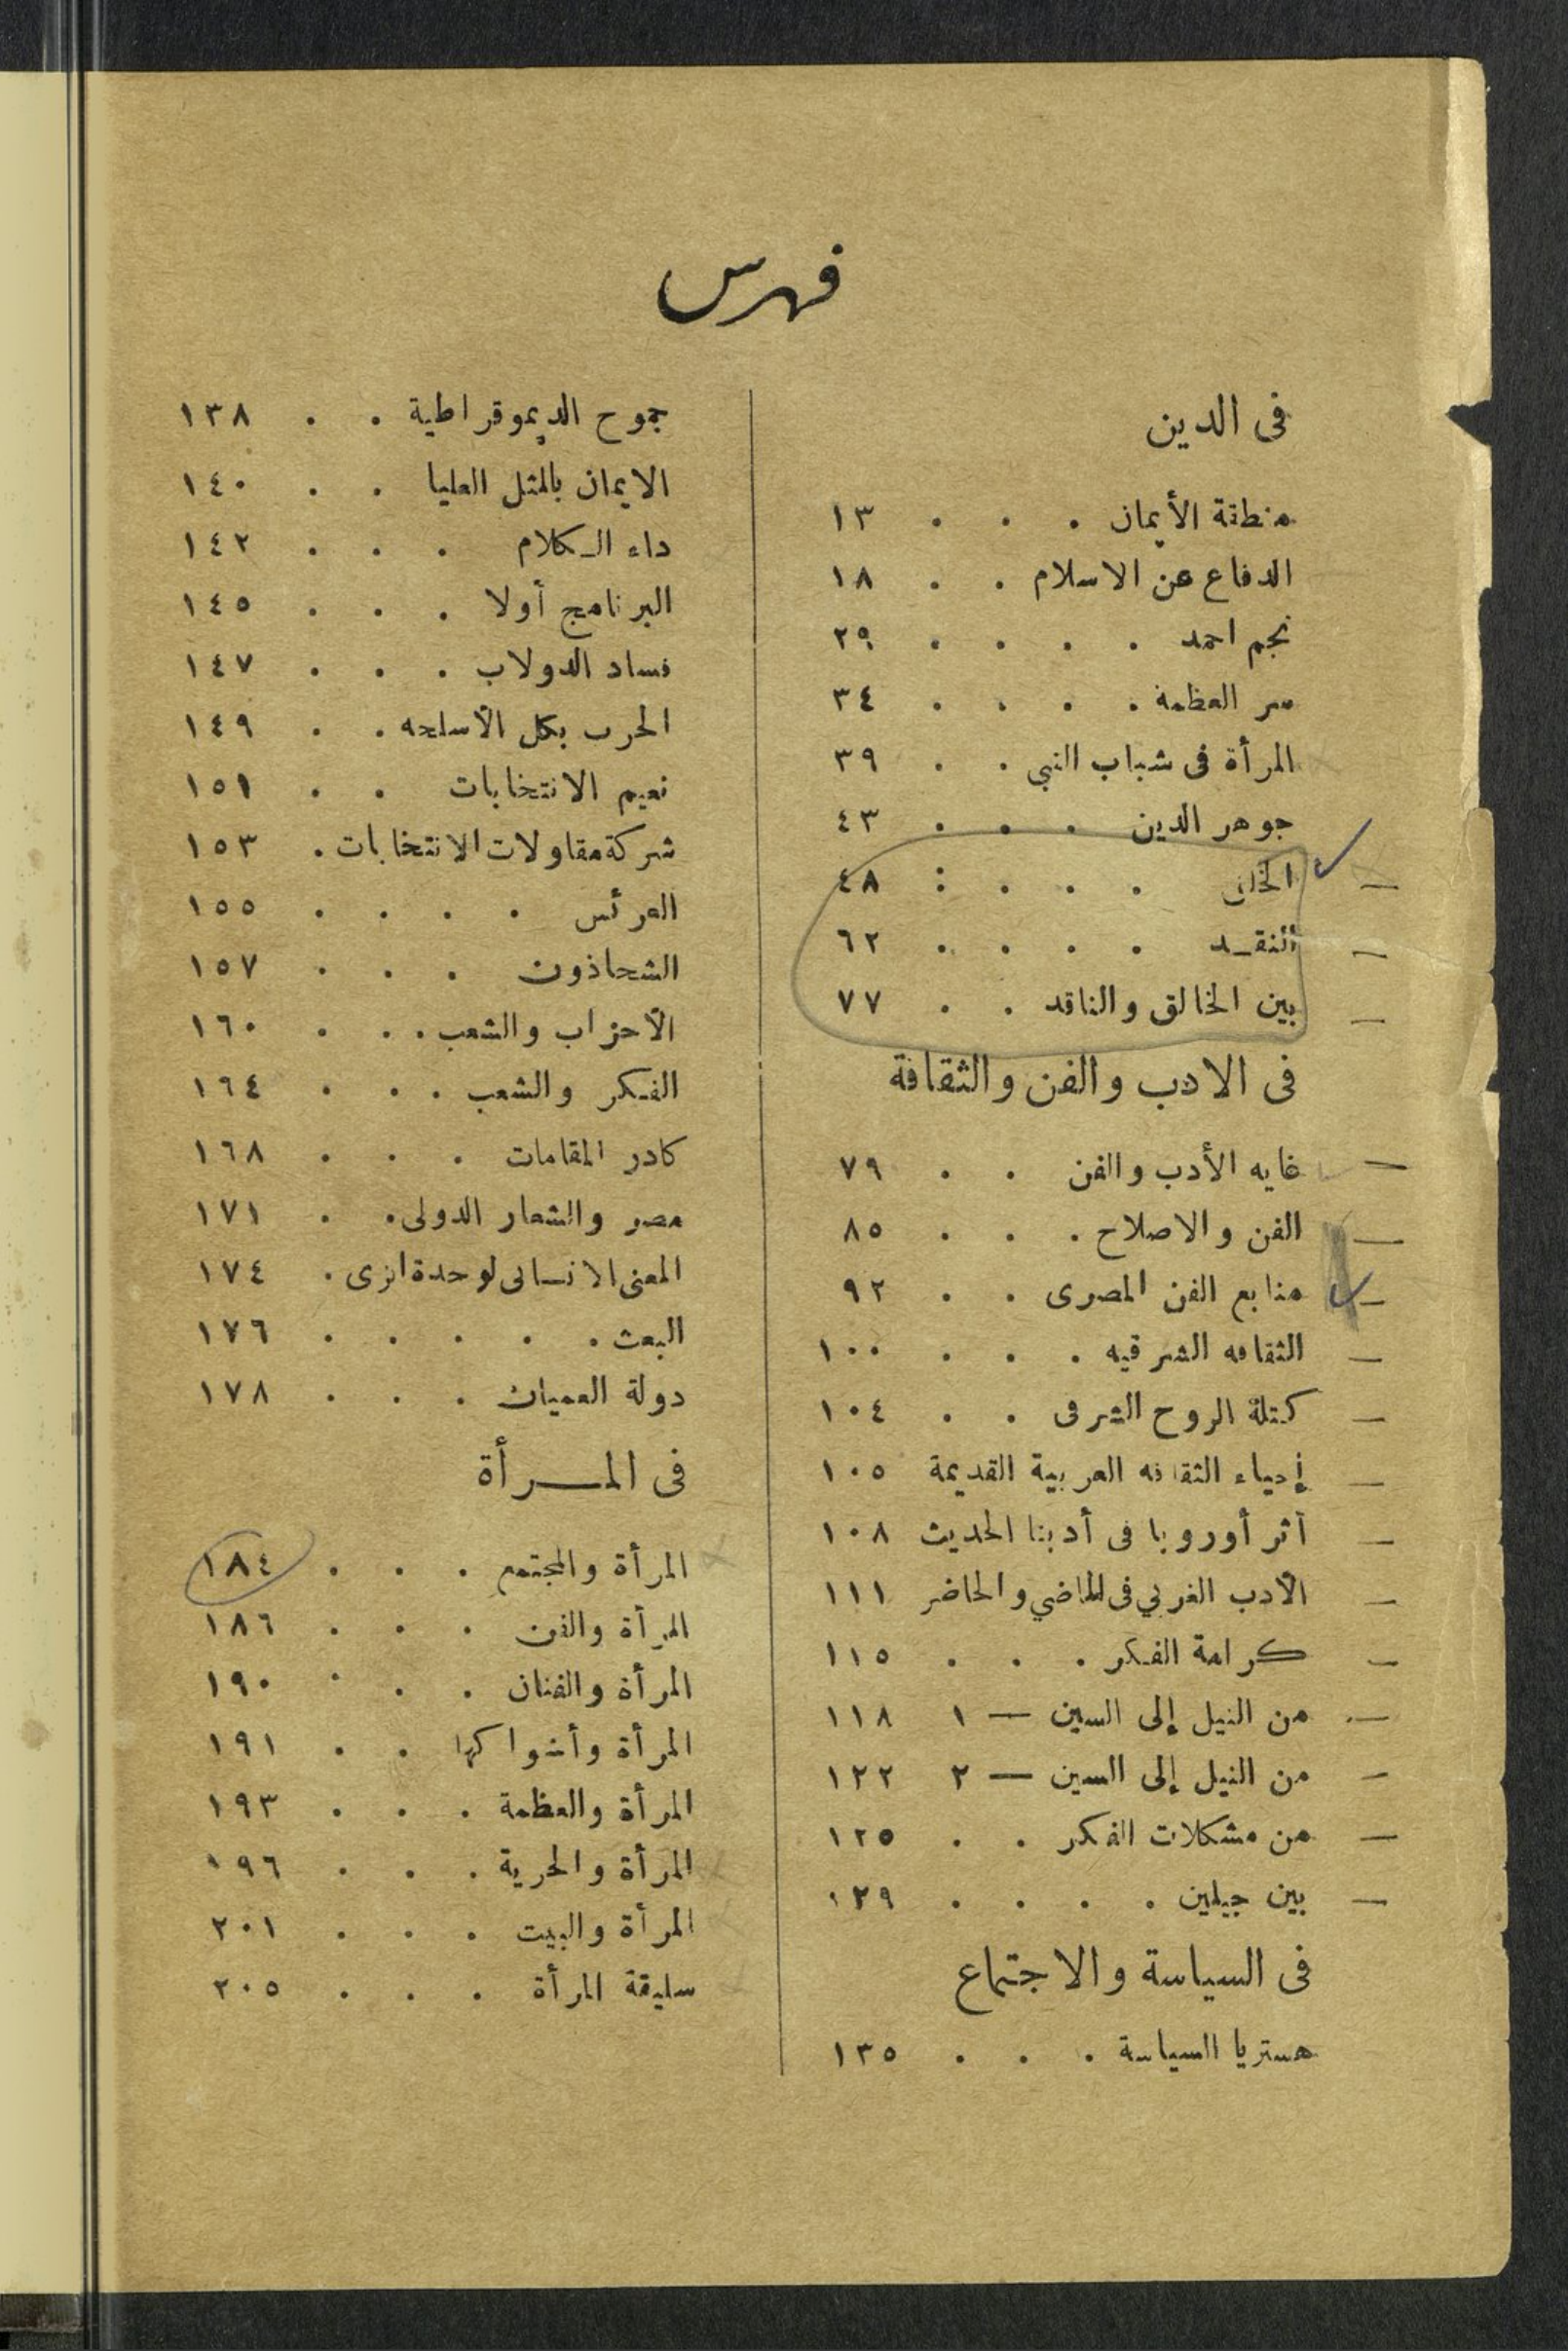 فهرس
فى الدين
منطقة الأيمان . . . ١٣
الدفاع عن الاسلام . . ١٨
نجم احمد . . . . ٢٩
سر العظمة . . . . ٣٤
المرأة فى شباب النبى . . ٣٩
جوهر الدين . . . ٤٣
الخلق . . . : ٤٨
النقـد . . . . ٦٢
بين الخالق والناقد . . ٧٧
فى الادب والفن والثقافة
غايه الأدب والفن . . ٧٩
الفن والاصلاح . . . ٨٥
منابع الفن المصرى . . ٩٢
الثقافه الشرقيه . . . ١٠٠
كتلة الروح الشرقى . . ١٠٤
إحياء الثقافه العربية القديمة ١٠٥
أثر أوروبا فى أدبنا الحديث ١٠٨
الأدب الغربي فى الماضي والحاضر ١١١
كرامة الفكر . . . ١١٥
من النيل إلى السين — ١ ١١٨
من النيل إلى السين — ٢ ١٢٢
من مشكلات الفكر . . ١٢٥
بين جيلين . . . . ١٢٩
فى السياسة والاجتماع
هستريا السياسة . . . ١٣٥
جموح الديموقراطية . . ١٣٨
الايمان بالمثل العليا . . ١٤٠
داء الكلام . . . ١٤٢
البرنامج أولا . . . ١٤٥
فساد الدولاب . . . ١٤٧
الحرب بكل الأسلحه . . ١٤٩
نعيم الانتخابات . . ١٥١
شركة مقاولات الانتخابات . ١٥٣
العرئس . . . . ١٥٥
الشحاذون . . . ١٥٧
الأحزاب والشعب . . . ١٦٠
الفكر والشعب . . . ١٦٤
كادر المقامات . . . ١٦٨
مصر والشعار الدولى . . ١٧١
المعنى الانسانى لوحدة الزى . ١٧٤
البعث . . . . . ١٧٦
دولة العميان . . . ١٧٨
فى المـــرأة
المرأة والمجتمع . . . ١٨٤
المرأة والفن . . . ١٨٦
المرأة والفنان . . . ١٩٠
المرأة وأشواكها . . ١٩١
المرأة والعظمة . . . ١٩٣
المرأة والحرية . . . ١٩٦
المرأة والبيت . . . ٢٠١
سليقة المرأة . . . ٢٠٥